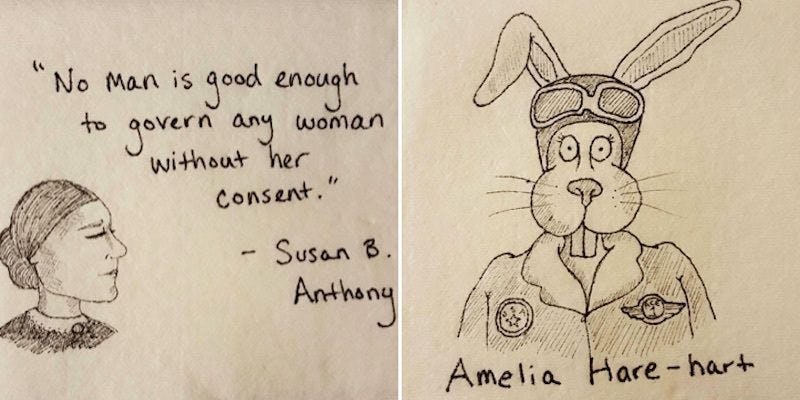 "No man is good enough
to govern any woman
without her
consent."
- Susan B.
Anthony
USA
Amelia Hare-hart